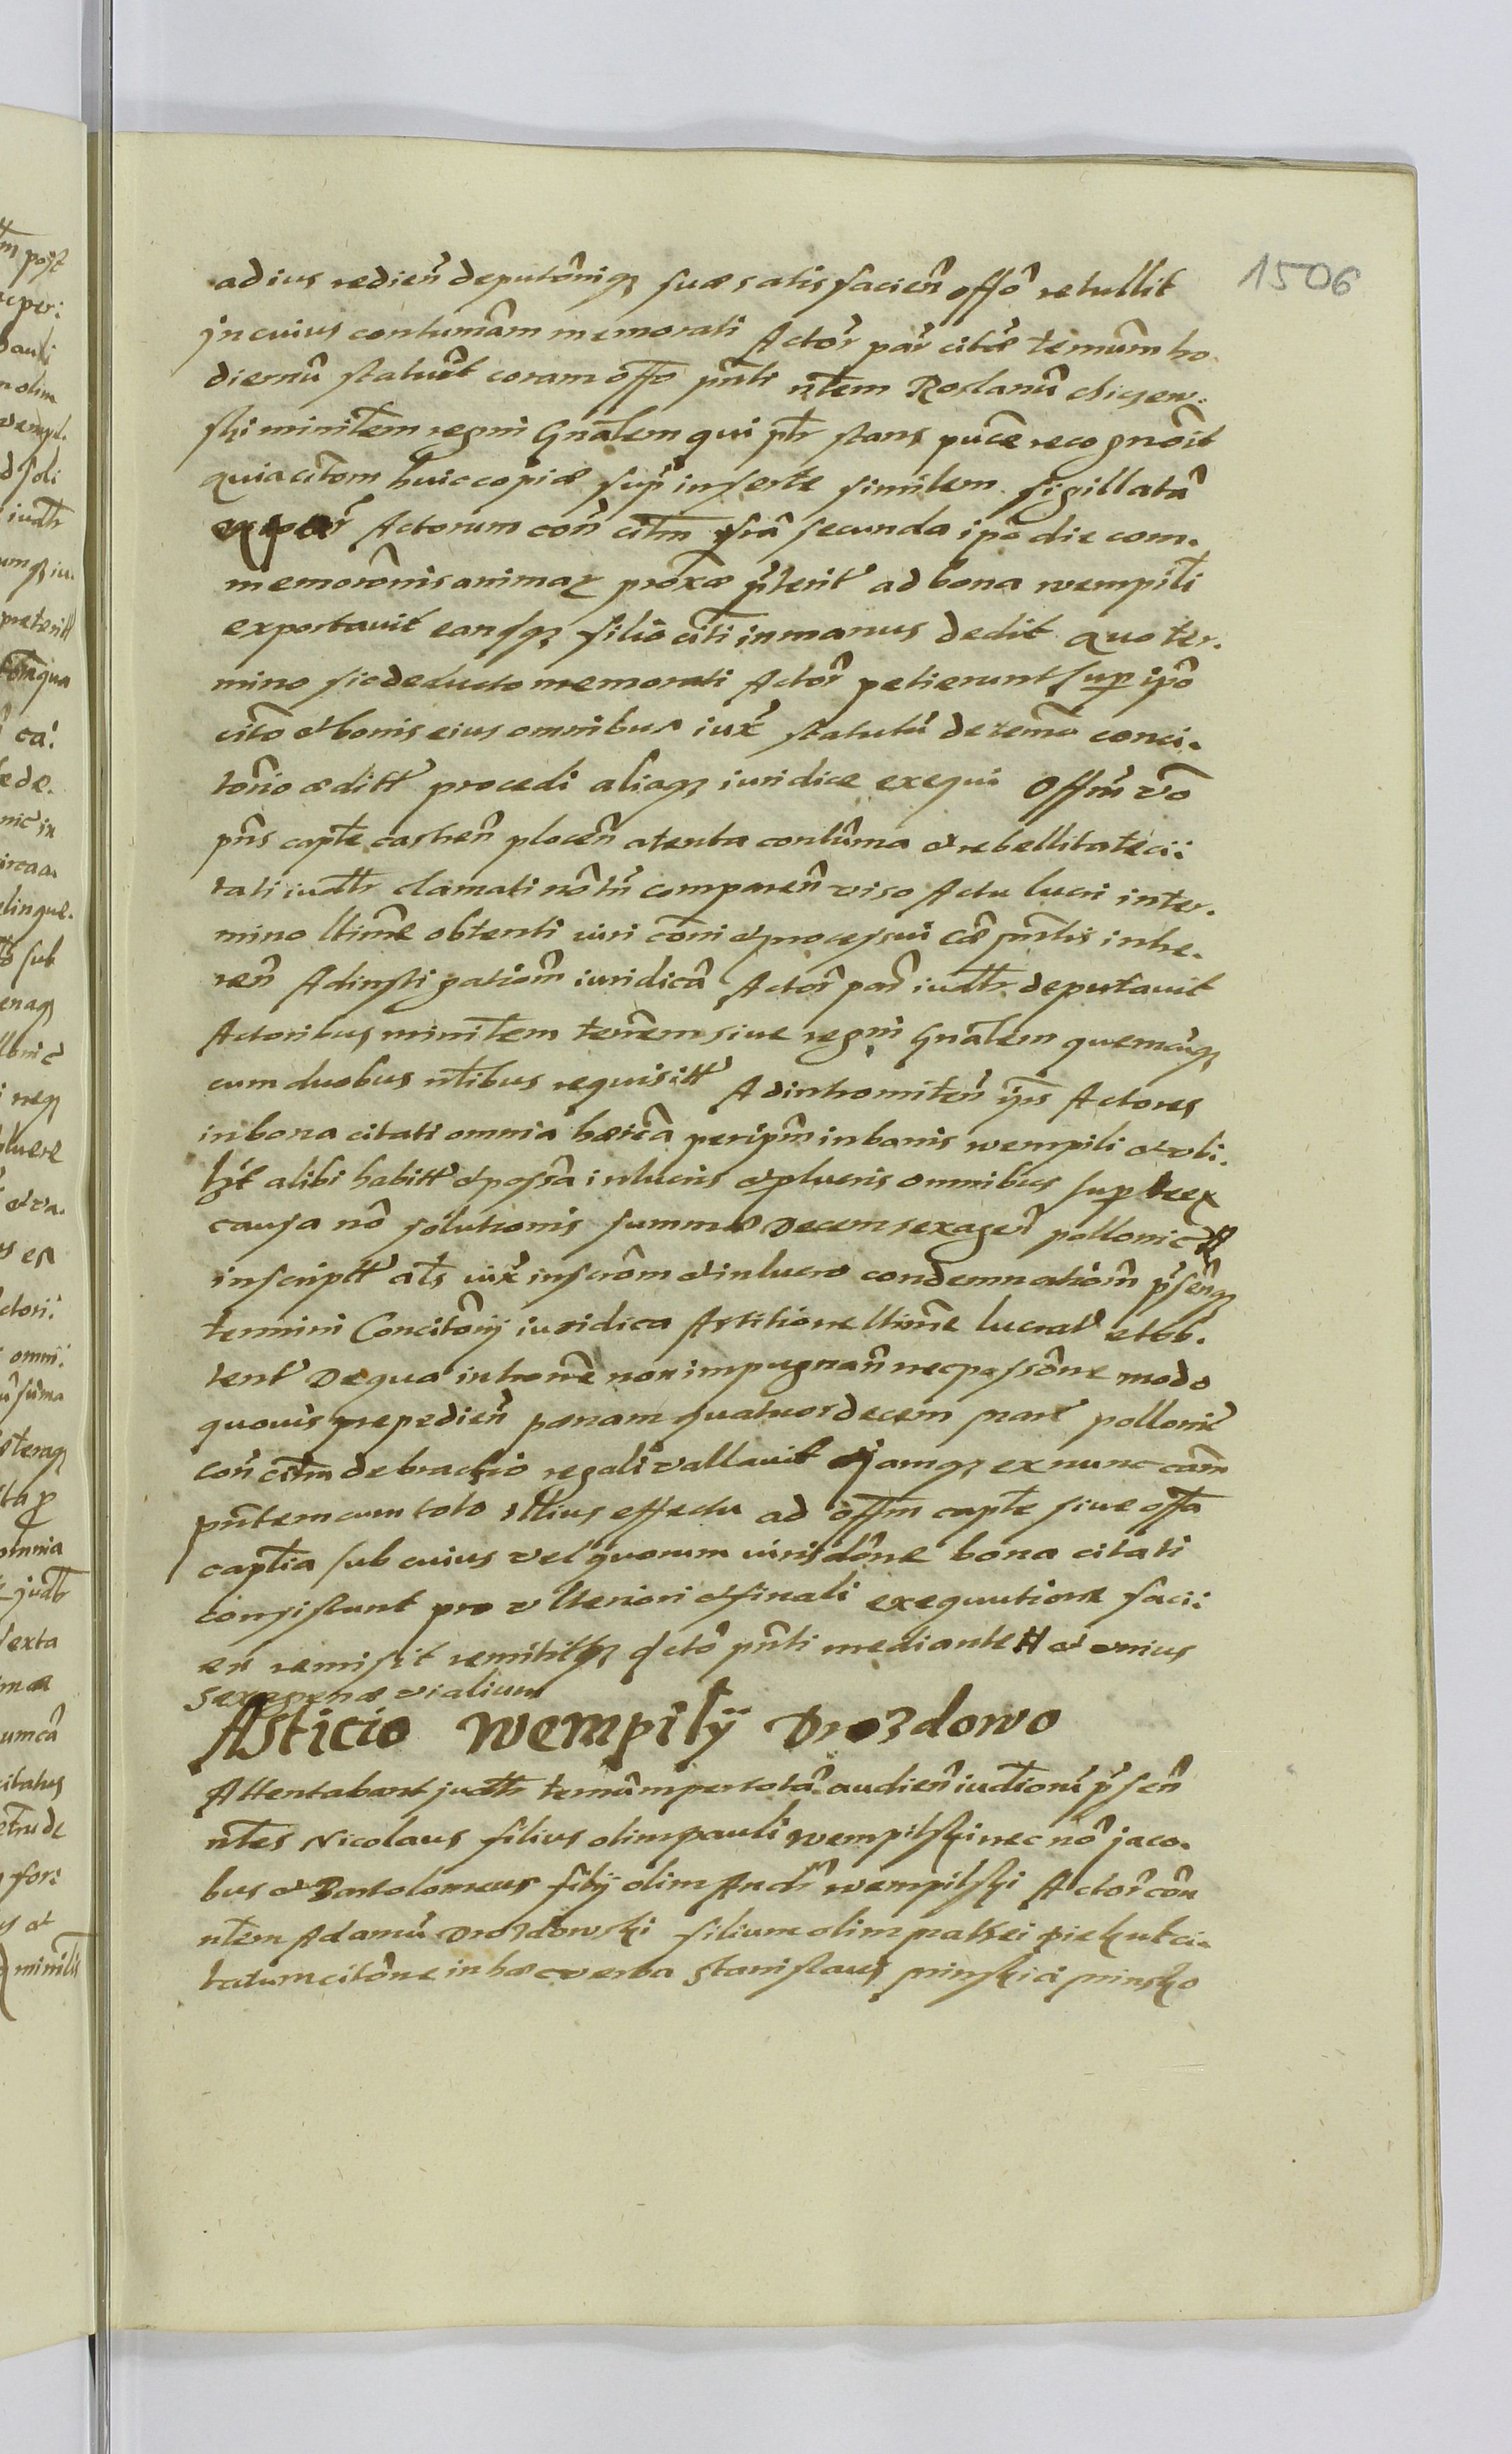 1506
ad ius redien̄ deputōniq3 suae satisfacien̄ offō retullit
jn cuius contumām memorati Actōr pār citōe termīnum ho
diernū statuēt coram offō pn̄ti n̄tem Roslanū
ski min̄lem regni Gn̄alem qui pn̄tr stans puce recognōit
quia citōm huic copiae supr̄ inserte similem sigillatā
Actorum con̄ citm̄ fria secunda ipō die com.
memorōnis animar proxē pr̄terit ad bona wempili
exportavit eandq3 filio citi in manus dedit quo ter.
mino sic deducto memorati Actōr petierunt sup ipō
citō et bonis eius omnibus iux̄ statutū de termō conci.
tōrio aeditt procedi aliaq3 iuridice exequi Offm̄ vō
pn̄s capte castren̄ plocen̄ atenta contūma et rebellitate ci:
tati iudtr clamati nō tn̄ comparen̄ viso Actu lucri in ter.
mino ltime obtenti iuri cōni et processui cāe pn̄tis inhe.
ren̄ Ad instigatiōm iuridicā Actōr pār iudtr deputavit
Actoribus min̄lem terrem sive regni Gn̄alem quemcuq3
cum duobus n̄libus requisitt Ad intromiten̄ ip̄s Actores
in bona citati omnia haerica per ipm̄ in bonis wempili et vbi.
lzt alibi habitt et possā in lucris et plucris omnibus sup
causa nō solutionis summae Decem sexagen̄ pollonic
inscriptt als iux̄ inscrōm et in lucro condemnatiōm pr̄senq3
termini Concitōrij iuridica Astitione ltime lucrat et ob.
tent De qua intromē non impugnan̄ nec possōne modo
quovis prepedien̄ paenam quatuordecem marc pollonic
con̄ citm̄ de brachio regali vallavit jamq3 ex nunc cām
pn̄tem cum toto illius effectu ad offm̄ capte sive offa
captia sub cuius vel quorum iurisdōne bona citati
consistunt pro vlteriori et finali exequutione faci:
en remisit remititq3 Actō pn̄ti mediante et vnius
sexagenae vialium
Asticio wempilij Drozdowo
Attentabant judtr termīnum per totā audien̄ iudtiorū pr̄sen̄
n̄les Nicolaus filius olim pauli wempilski nec nō jaco.
bus et Bartolomeus filij olim Andr̄ wempilski Actōr cōn
n̄lem Adamū Drozdowski filium olim mathei piekut ci.
tatum citōne in haec verba Stanislaus minski a minsko